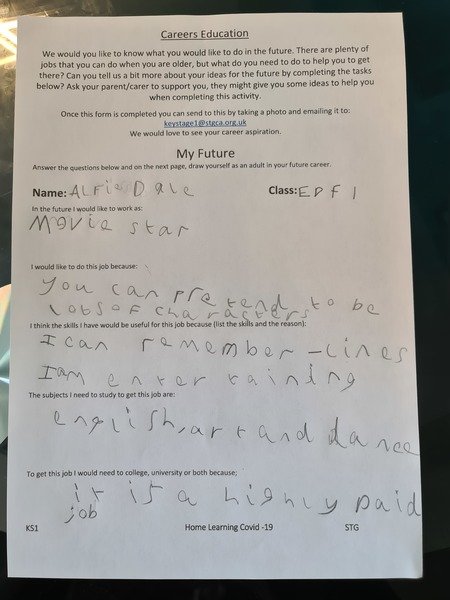 Careers Education
We would you like to know what you would like to do in the future. There are plenty of
jobs that you can do when you are older, but what do you need to do to help you to get
there? Can you tell us a bit more about your ideas for the future by completing the tasks
below? Ask your parent/carer to support you, they might give you some ideas to help you
when completing this activity.
Once this form is completed you can send to this by taking a photo and emailing it to:
keystage1@stgca.org.uk
We would love to see your career aspiration.
My Future
Answer the questions below and on the next page, draw yourself as an adult in your future career.
Name: ALFie Dale Class: EPF1
In the future I would like to work as:
Movie star
I would like to do this job because:
You can pretend to be
Lots OF characters
I think the skills I have would be useful for this job because (list the skills and the reason):
I can remember - Lines
I am entertaining
The subjects I need to study to get this job are:
english, art and dance
To get this job I would need to college, university or both because;
it is a highly paid
job
KS1 Home Learning Covid -19 STG